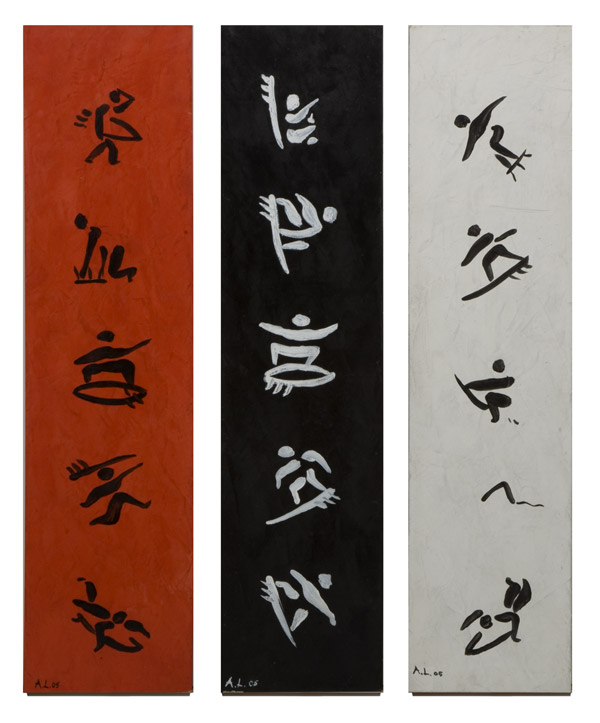 A.L. 05
A.L. 05
A.L. 05